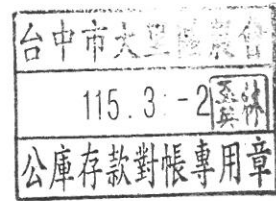 台中市大里區農會
115. 3. -2
公庫存款對帳專用章